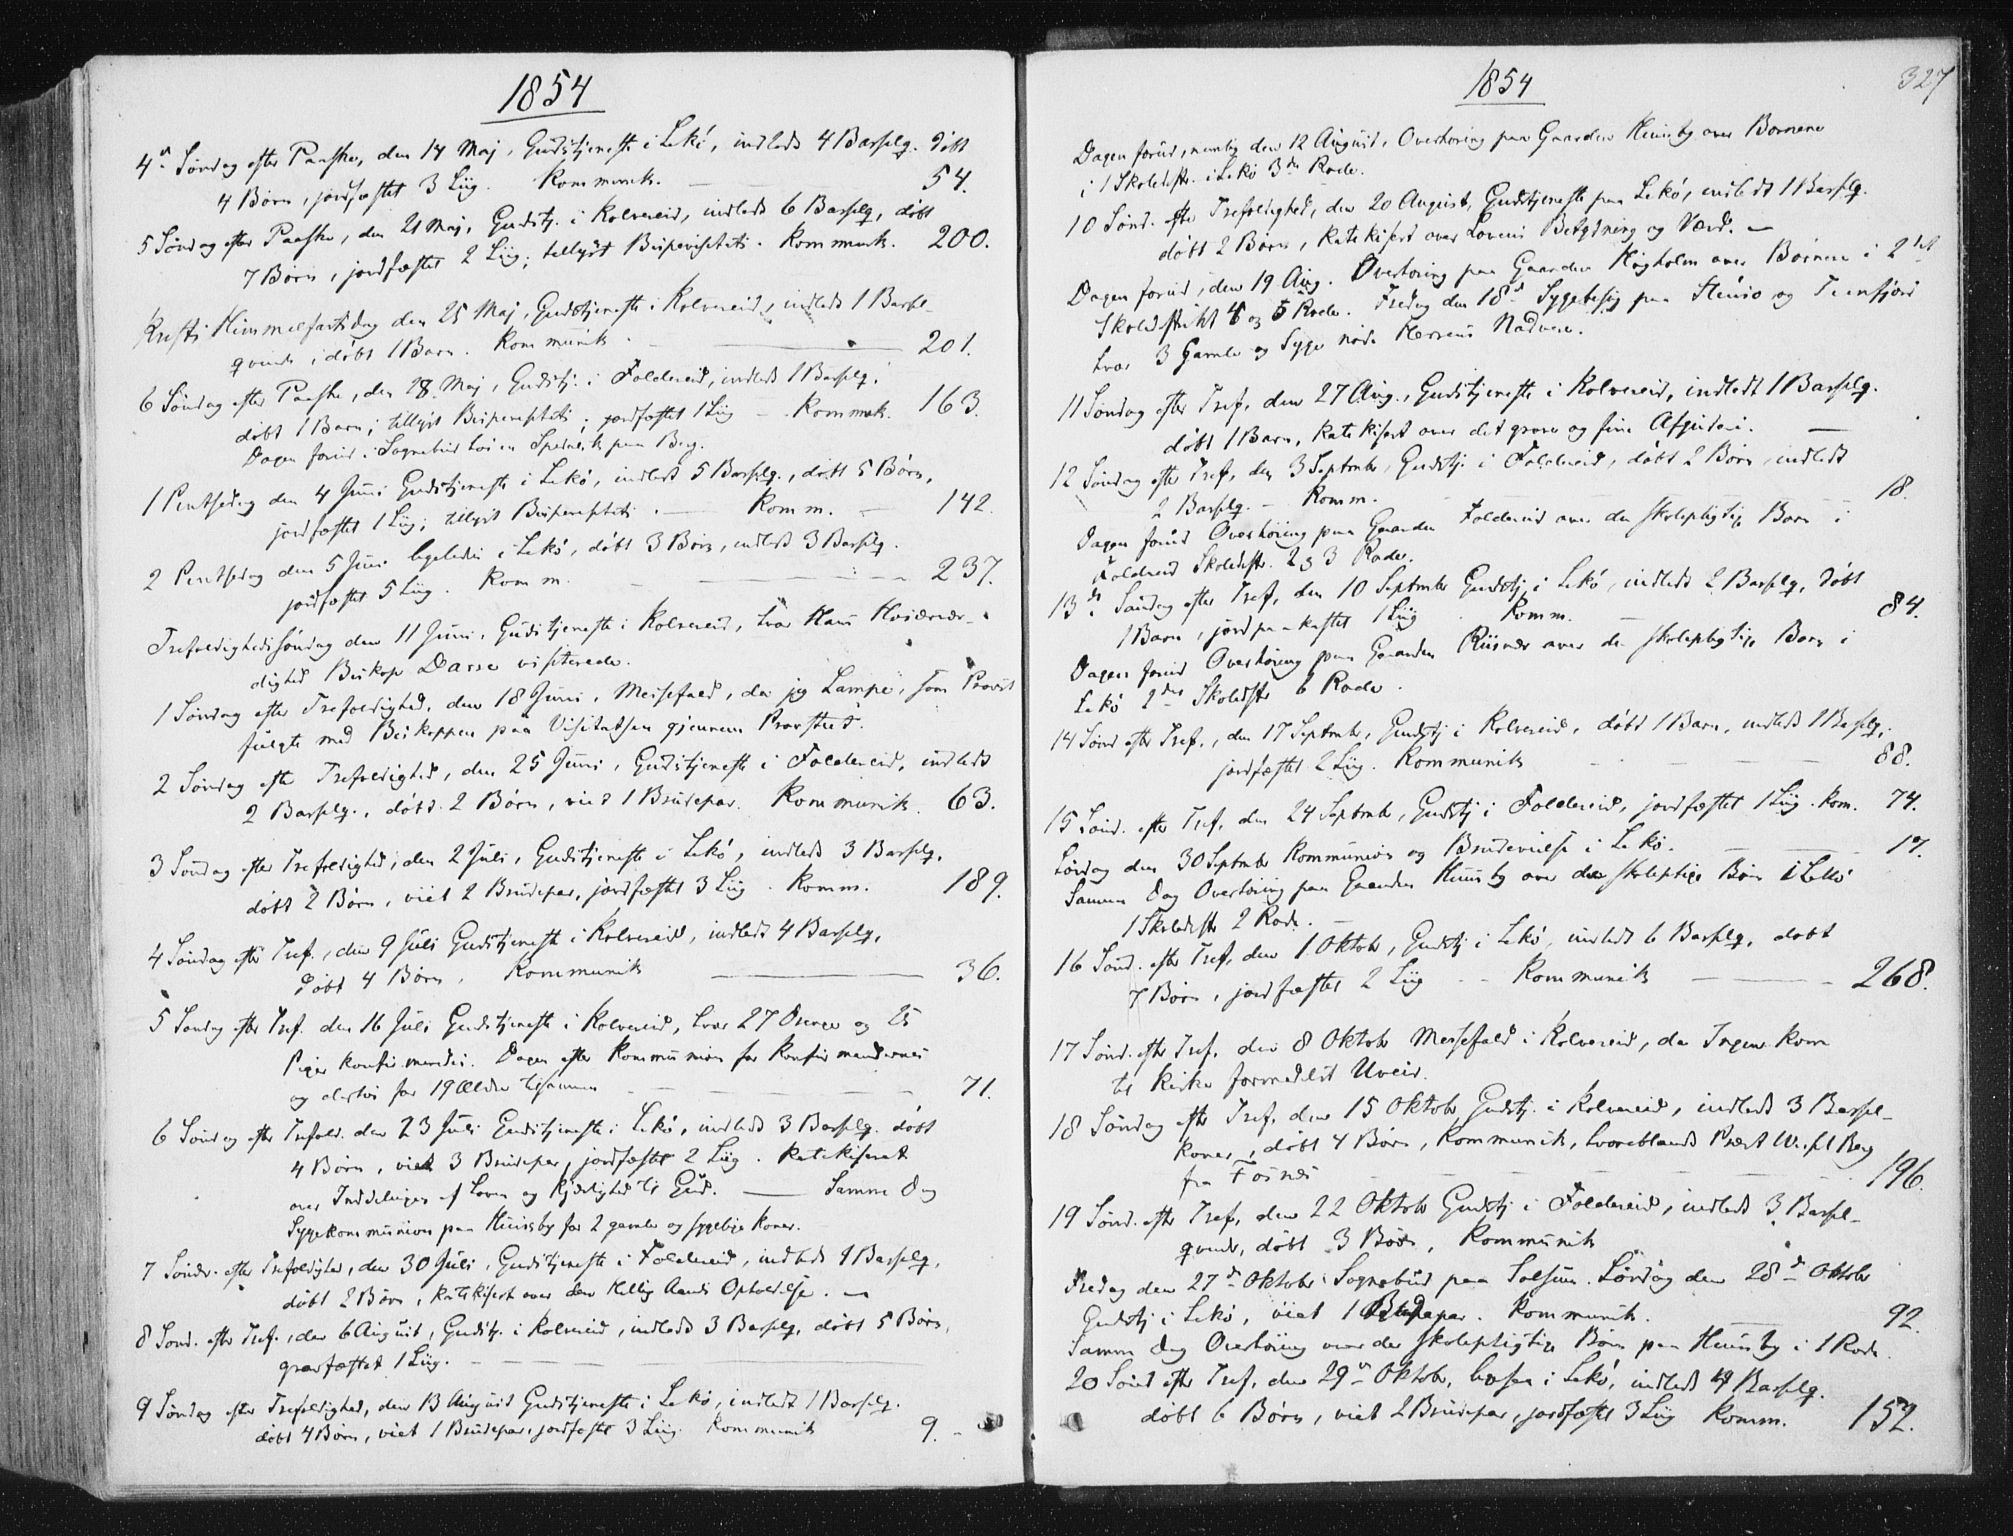 1854
4de Søndag efter Paaske, den 14 Maj, Gudstjeneste i Lekö, indledt 4 Barselq. døbt
4 Børn, jordfæstet 3 Liig. Kommunik. 54.
5 Søndag efter Paaske, den 21 Maj, Gudstj. i Kolvereid, indledt 6 Barselq, døbt
7 Børn, jordfæstet 2 Liig; tillyst Bispevisitats. Kommunik. 200.
Kristi Himmelfartsdag den 25 Maj, Gudstjeneste i Kolvereid, indledt 1 Barsel-
qvinde, døbt 1 Barn. Kommunik 201.
6 Søndag efter Paaske, den 28 Maj, Gudstj. i Foldereid, indledt 1 Barselq.
døbt 1 Barn; tillyst Bispevisitats; jordfæstet 1 Liig - Kommunik. 163.
Dagen forud i Sognebud hos en Spedalsk paa Berg.
1 Pintsedag den 4 Juni Gudstjeneste i Lekö, indledt 5 Barselq., døbt 5 Børn,
jordfæstet 1 Liig; tillyst Bispevisitats. Komm. 142.
2 Pintsedag den 5 Juni ligeledes i Lekö, døbt 3 Børn, indledt 3 Barselq.
jordfæstet 5 Liig. Komm. 237.
Trefoldighedssøndag den 11 Juni, Gudstjeneste i Kolvereid, hvor Hans Høiærvær-
dighed Biskop Darre visiterede.
1 Søndag efter Trefoldighed, den 18 Juni, Messefald, da jeg Lampe, som Provst
fulgte med Biskoppen paa Visitatsen gjennem Provstiet.
2 Søndag efter Trefoldighed, den 25 Juni, Gudstjeneste i Foldereid, indledt
2 Barselq., døbt 2 Børn, viet 1 Brudepar. Kommunik. 63.
3 Søndag efter Trefoldighed, den 2 Juli, Gudstjeneste i Lekö, indledt 3 Barselq.
døbt 2 Børn, viet 2 Brudepar, jordfæstet 3 Liig. Komm. 189.
4 Søndag efter Tref., den 9 Juli Gudstjeneste i Kolvereid, indledt 4 Barselq,
døbt 4 Børn. Kommunik 36.
5 Søndag efter Tref. den 16 Juli Gudstjeneste i Kolvereid, hvor 27 Drenge og 25
Piger konfirmeredes. Dagen efter Kommunion for Konfirmandernes
og desuden for 19 Ældre tilsammen 71.
6 Søndag efter Trefold. den 23 Juli Gudstjeneste i Lekö, indledt 3 Barselq. døbt
4 Børn, viet 3 Brudepar, jordfæstet 2 Liig. Katekiseret
over Inddelingen af Loven og Kjærlighed til Gud. Samme Dag
Sygekommunion paa Huusby for 2 gamle og sygelige Koner.
7 Sønd. efter Trefoldighed, den 30 Juli, Gudstjeneste i Foldereid, indledt 1 Barselq,
døbt 2 Børn, katekiseret over den Hellig Aands Opholdelse.
8 Sønd. efter Tref., den 6 August, Gudstj. i Kolvereid, indledt 3 Barselq, døbt 5 Børn,
gravfæstet 1 Liig.
9 Søndag efter Trefoldighed, den 13 August Gudstjeneste i Lekö, indledt 1 Barselq.
døbt 4 Børn, viet 1 Brudepar, jordfæstet 3 Liig. Kommunik 9.
1854 327
Dagen forud, nemlig den 12 August, Overhøring paa Gaarden Huusby over Børnene
i 1 Skoledistr. i Lekö 3de Rode.
10 Sønd. efter Trefoldighed, den 20 August, Gudstjeneste paa Lekö, indledt 1 Barselq.
døbt 2 Børn, katekiseret over Lovens Betydning og Værd.
Dagen forud, den 19 Aug. Overhøring paa Gaarden Høgholm over Børnene i 2det
Skoledistrikt 4 og 5 Rode. Fredag den 18de Sygebesøg paa og
hvor 3 Gamle og Syge nøde Herrens Nadvere.
11 Søndag efter Tref, den 27 Aug., Gudstjeneste i Kolvereid, indledt 1 Barselq.
døbt 1 Barn, katekiseret over det grove og fine Afguderi.
12 Søndag efter Tref, den 3 Septmber, Gudstj. i Foldereid, døbt 2 Børn, indledt
2 Barselq. - Komm. 18.
Dagen forud Overhøring paa Gaarden Foldereid over de skolepligtige Børn i
Foldereid Skoledistr. 2 og 3 Rode.
13de Søndag efter Tref, den 10 Septmber Gudstj. i Lekö, indledt 2 Barselq, døbt
1 Barn, jordpaakastet 1 Liig. Komm. 84.
Dagen forud Overhøring paa Gaarden Riisnæs over de skolepligtige Børn i
Lekö 2det Skoledistr 6 Rode.
14 Sønd efter Tref., den 17 Septmber, Gudstj i Kolvereid, døbt 1 Barn, indledt 1 Barselq,
jordfæstet 2 Liig. Kommunik 88.
15 Sønd. efter Tref, den 24 Septmber, Gudstj i Foldereid, jordfæstet 1 Liig. Kom. 74.
Lørdag den 30 Septmber Kommunion og Brudevielse i Lekö. 17.
Samme Dag Overhøring paa Gaarden Huusby over de skolepligtige Børn i Lekö
1 Skoledistr 2 Rode.
16 Sønd. efter Tref, den 1 Oktobr, Gudstj i Lekö, indledt 6 Barselq, døbt
7 Børn, jordfæstet 2 Liig - - Kommunik 268.
17 Sønd. efter Tref, den 8 Oktobr Messefald i Kolvereid, da Ingen kom
til Kirke formedelst Uveir.
18 Søndag efter Tref, den 15 Oktobr Gudstj. i Kolvereid, indledt 3 Barsel-
koner, døbt 4 Børn, Kommunik, hvoriblandt Præst Berg
fra Fosnæs 196.
19 Sønd. efter Tref, den 22 Oktobr Gudstj i Foldereid, indledt 3 Barsel-
qvinder, døbt 3 Børn, Kommunik
Fredag den 27de Oktobr i Sognebud paa Solsem. Lørdag den 28de Oktobr
Gudstj i Lekö, viet 1 Brudepar. Kommunik. 92.
Samme Dag Overhøring over de skolepligtige Børn paa Huusby i 1 Rode.
20 Sønd efter Tref, den 29de Oktobr, Messe i Lekö, indledt 4 Barselq.
døbt 6 Børn, viet 2 Brudepar, jordfæstet 3 Liig Komm. 152.